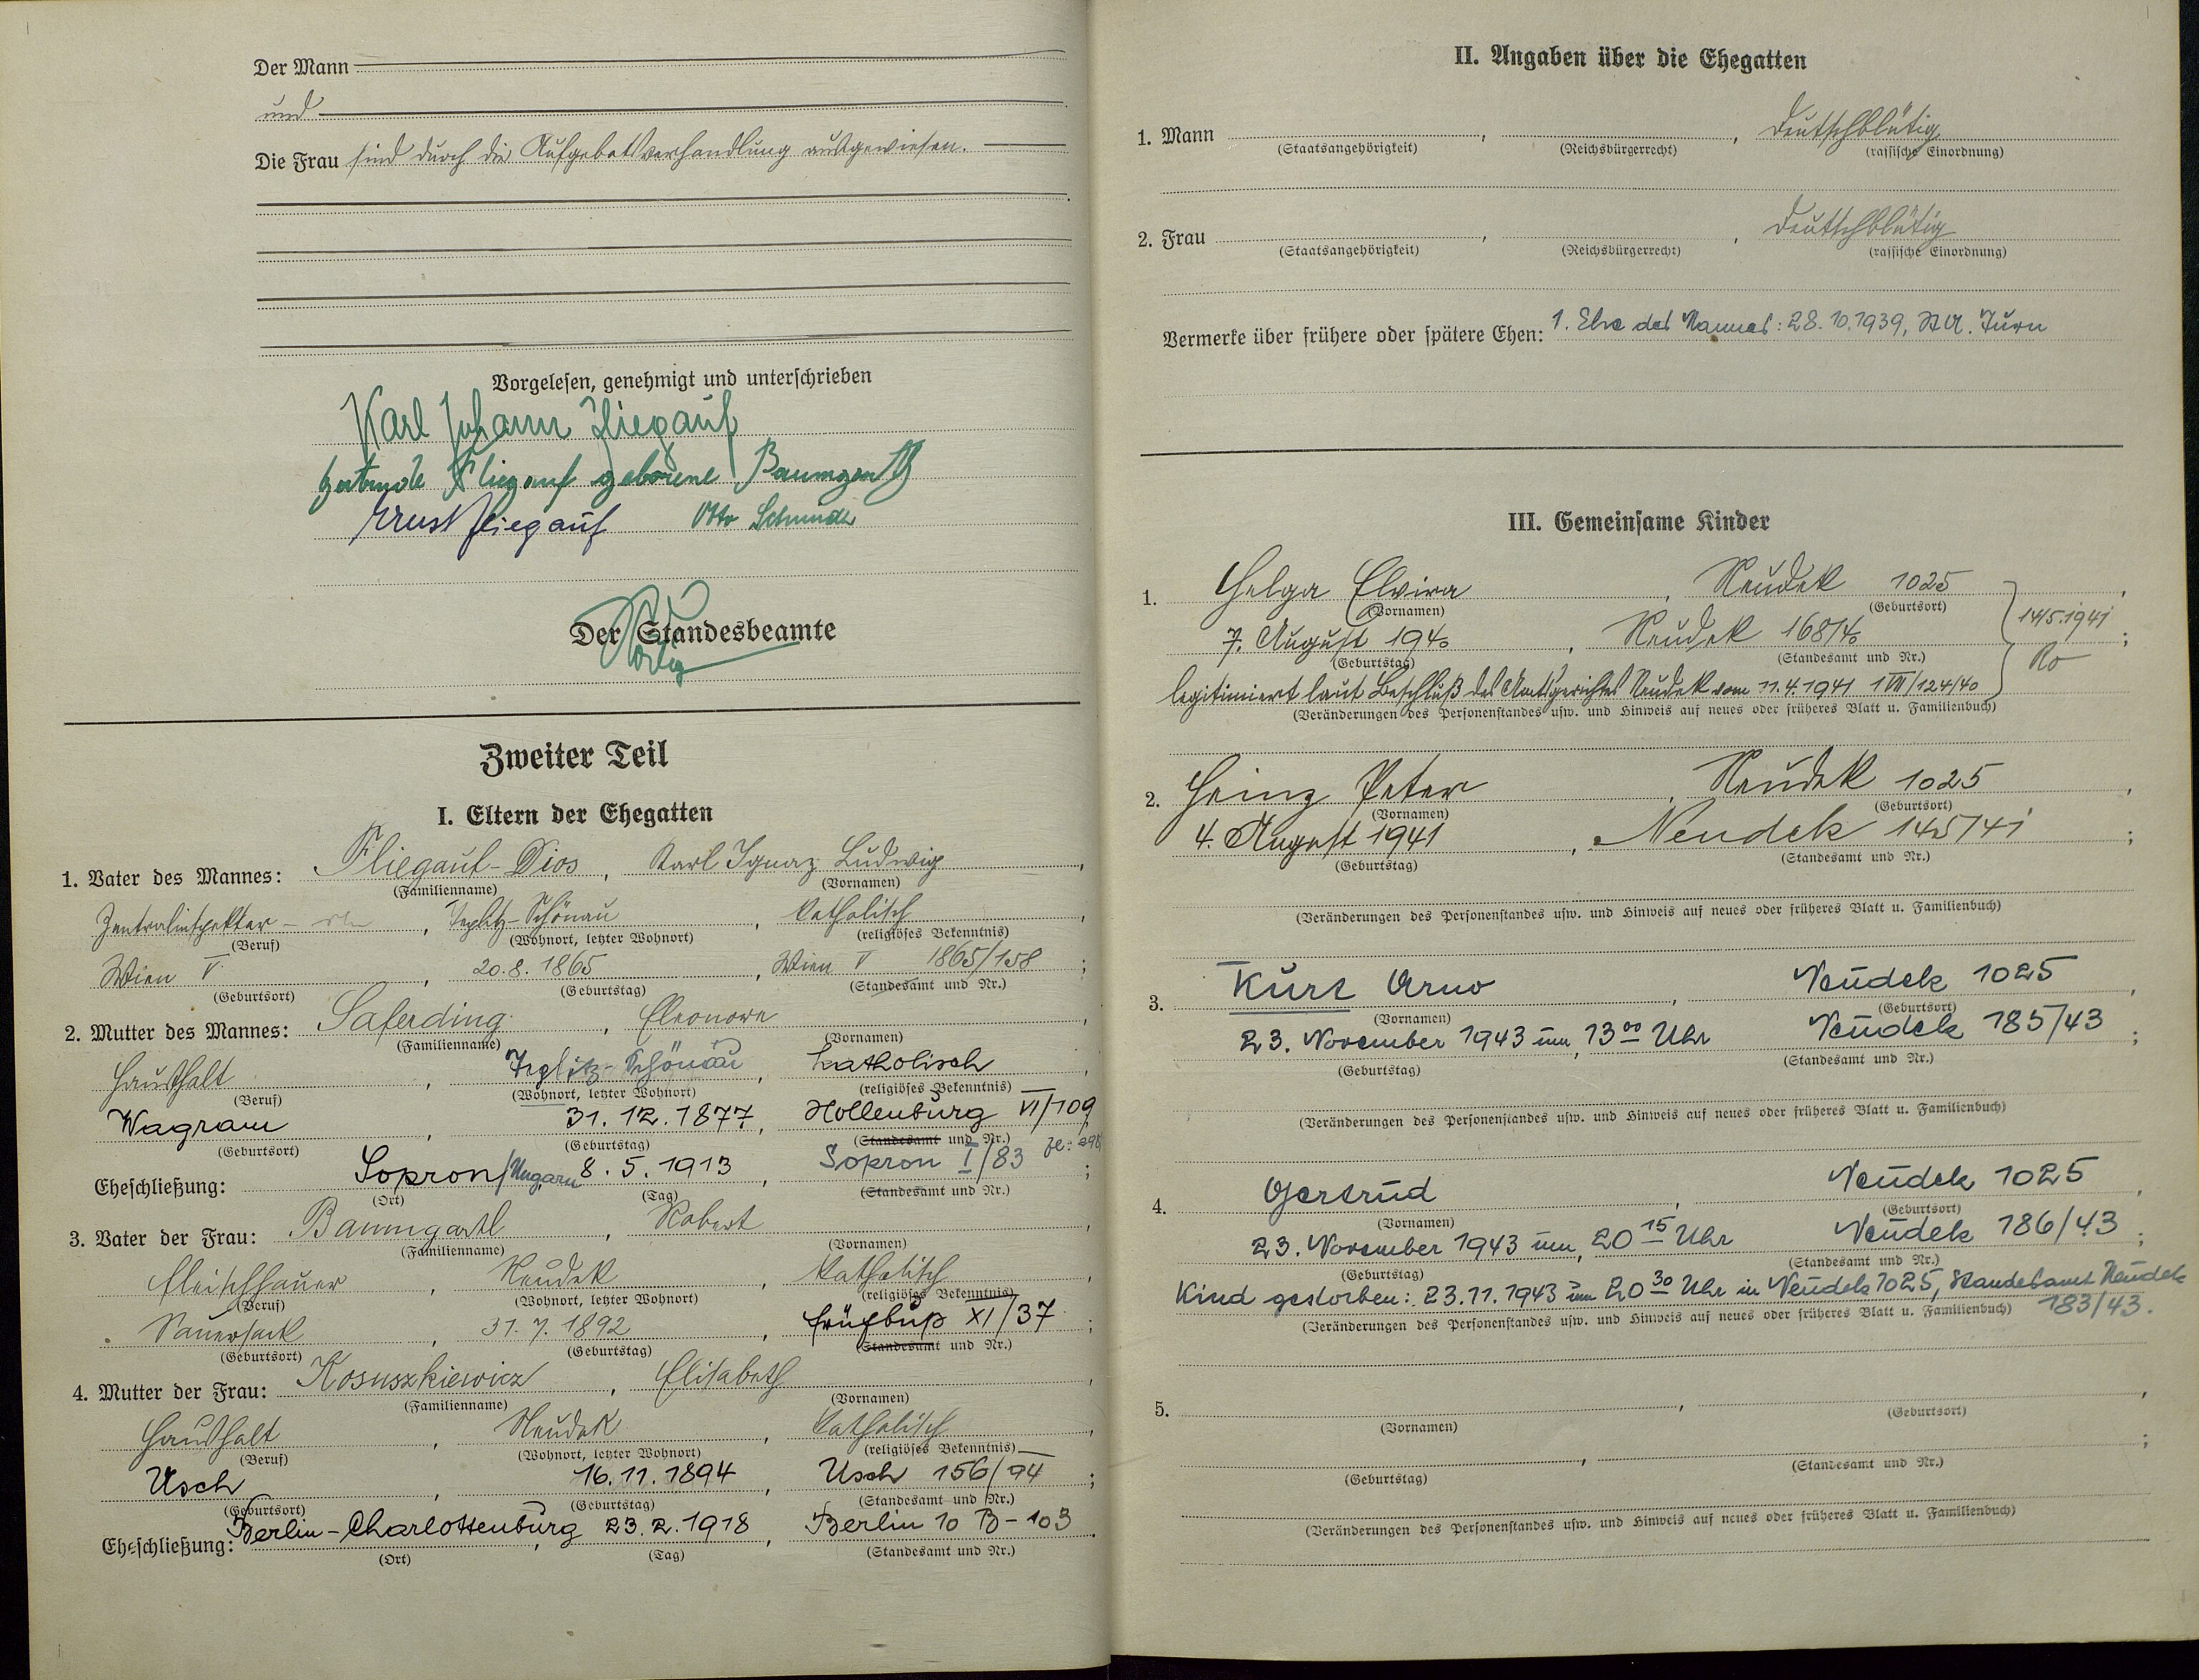 Der Mann
und
Die Frau sind durch die Aufgebotsverhandlung ausgewiesen.
Vorgelesen, genehmigt und unterschrieben
Karl Johann Fliegauf
Gertrude Fliegauf geborene Baumgartl
Ernst Fliegauf Otto
Der Standesbeamte
Zweiter Teil
I. Eltern der Ehegatten
1. Vater des Mannes: Fliegauf-Dios, Karl Ignaz Ludwig,
(Familienname) (Vornamen)
Zentralinspektor, Teplitz-Schönau, katholisch,
(Beruf) (Wohnort, letzter Wohnort) (religiöses Bekenntnis)
Wien V., 20.8.1865, Wien V 1865/158;
(Geburtsort) (Geburtstag) (Standesamt und Nr.)
2. Mutter des Mannes: Saferding, Eleonore,
(Familienname) (Vornamen)
Haushalt, Teplitz-Schönau, katholisch,
(Beruf) (Wohnort, letzter Wohnort) (religiöses Bekenntnis)
Wagram, 31.12.1877, Hollenburg VI/109
(Geburtsort) (Geburtstag) (Standesamt und Nr.)
Eheschließung: Sopron/Ungarn 8.5.1913, Sopron I/83;
(Ort) (Tag) (Standesamt und Nr.)
3. Vater der Frau: Baumgartl, Robert,
(Familienname) (Vornamen)
Fleischhauer, Neudek, katholisch,
(Beruf) (Wohnort, letzter Wohnort) (religiöses Bekenntnis)
Sauersack, 31.7.1892, Frühbuß XI/37;
(Geburtsort) (Geburtstag) (Standesamt und Nr.)
4. Mutter der Frau: Kosuszkiewicz, Elisabeth,
(Familienname) (Vornamen)
Haushalt, Neudek, katholisch,
(Beruf) (Wohnort, letzter Wohnort) (religiöses Bekenntnis)
Usch, 16.11.1894, Usch 156/94;
(Geburtsort) (Geburtstag) (Standesamt und Nr.)
Eheschließung: Berlin-Charlottenburg, 23.2.1918, Berlin 10 B-103.
(Ort) (Tag) (Standesamt und Nr.)
II. Angaben über die Ehegatten
1. Mann , , Deutschblütig
(Staatsangehörigkeit) (Reichsbürgerrecht) (rassische Einordnung)
2. Frau , , Deutschblütig
(Staatsangehörigkeit) (Reichsbürgerrecht) (rassische Einordnung)
Vermerke über frühere oder spätere Ehen: 1. Ehe des Mannes: 28.10.1939, St.A. Turn
III. Gemeinsame Kinder
1. Helga Elvira, Neudek 1025,
(Vornamen) (Geburtsort)
7. August 1940, Neudek 168/40; 14/5.1941
(Geburtstag) (Standesamt und Nr.)
legitimiert laut Beschluß des Amtsgerichtes Neudek vom 11.4.1941 1 VII/124/40
(Veränderungen des Personenstandes usw. und Hinweis auf neues oder früheres Blatt u. Familienbuch)
2. Heinz Peter, Neudek 1025,
(Vornamen) (Geburtsort)
4. August 1941, Neudek 145/41;
(Geburtstag) (Standesamt und Nr.)
(Veränderungen des Personenstandes usw. und Hinweis auf neues oder früheres Blatt u. Familienbuch)
3. Kurt Arno, Neudek 1025,
(Vornamen) (Geburtsort)
23. November 1943 um 13 00 Uhr, Neudek 185/43;
(Geburtstag) (Standesamt und Nr.)
(Veränderungen des Personenstandes usw. und Hinweis auf neues oder früheres Blatt u. Familienbuch)
4. Gertrud, Neudek 1025,
(Vornamen) (Geburtsort)
23. November 1943 um 20 15 Uhr, Neudek 186/43;
(Geburtstag) (Standesamt und Nr.)
Kind gestorben: 23.11.1943 um 20 30 Uhr in Neudek 1025, Standesamt Neudek
183/43.
(Veränderungen des Personenstandes usw. und Hinweis auf neues oder früheres Blatt u. Familienbuch)
5. , ,
(Vornamen) (Geburtsort)
, ;
(Geburtstag) (Standesamt und Nr.)
(Veränderungen des Personenstandes usw. und Hinweis auf neues oder früheres Blatt u. Familienbuch)